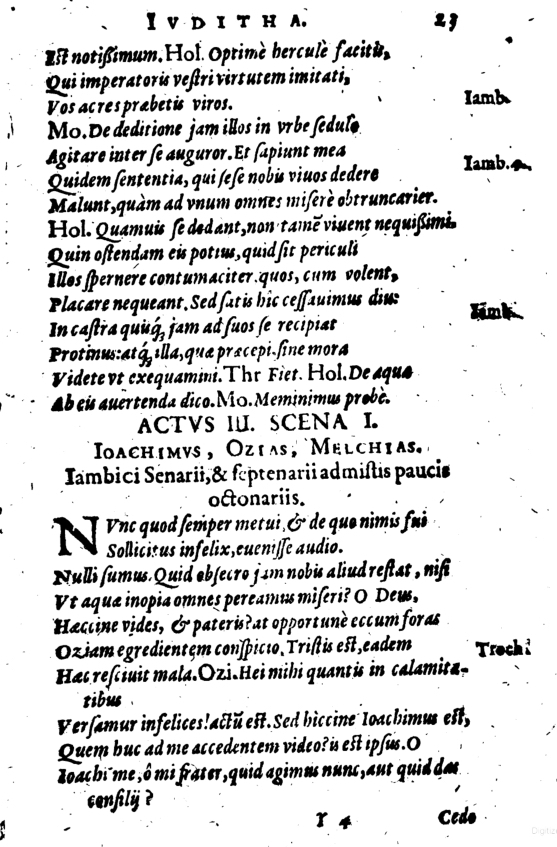 IVDITHA. 23
Est notißimum. Hol. Optimè herculè facitis,
Qui imperatoris vestri virtutem imitati,
Vos acres præbetis viros. Iamb.
Mo. De deditione jam illos in vrbe sedulo
Agitare inter se auguror. Et sapiunt mea Iamb. 4.
Quidem sententia, qui sese nobis viuos dedere
Malunt, quàm ad vnum omnes miserè obtruncarier.
Hol. Quamuis se dedant, non tamē viuent nequißimi.
Quin ostendam eis potius, quid sit periculi
Illos spernere contumaciter. quos, cum volent,
Placare nequeant. Sed satis hic cessauimus diu:
In castra quisq́; jam ad suos se recipiat Iamb.
Protinus: atq́; illa, quæ præcepi. sine mora
Videte vt exequamini. Thr Fiet. Hol. De aqua
Ab eis auertenda dico. Mo. Meminimus probè.
ACTVS III. SCENA I.
IOACHIMVS, OZIAS, MELCHIAS.
Iambici Senarii, & septenarii admistis paucis
octonariis.
NVnc quod semper metui, & de quo nimis fui
Sollicitus infelix, euenisse audio.
Nulli sumus. Quid obsecro jam nobis aliud restat, nisi
Vt aquæ inopia omnes pereamus miseri? O Deus,
Hæccine vides, & pateris? at opportunè eccum foras
Oziam egredientem conspicio. Tristis est, eadem Troch:
Hæc resciuit mala. Ozi. Hei mihi quantis in calamita-
tibus
Versamur infelices! actū est. Sed hiccine Ioachimus est,
Quem huc ad me accedentem video? is est ipsus. O
Ioachime, ô mi frater, quid agimus nunc, aut quid das
consilij?
Y 4 Cedo